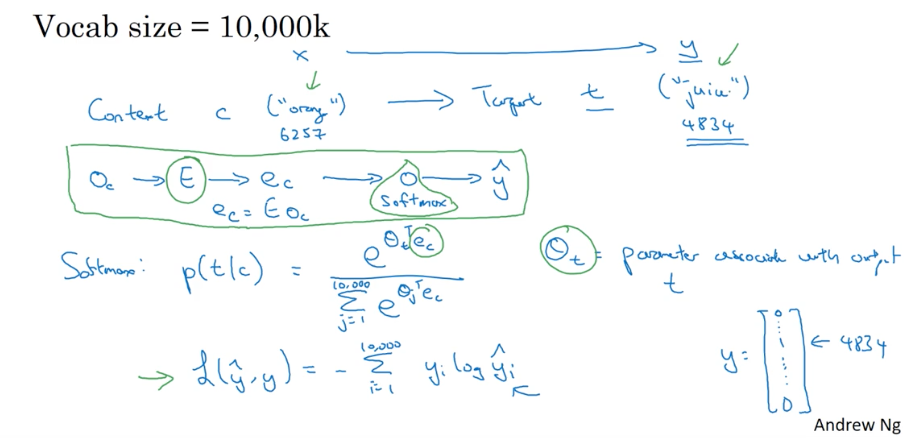 Vocab size = 10,000k
x → y
Content c ("orange") → Target t ("juice")
6257 4834
O_c → E → e_c → O → ŷ
softmax
e_c = E O_c
Softmax: p(t|c) = e^{θ_t^T e_c} / Σ_{j=1}^{10,000} e^{θ_j^T e_c}
θ_t = parameter associated with output t
L(ŷ, y) = - Σ_{i=1}^{10,000} y_i log ŷ_i
y = [0 ⋮ 1 ⋮ 0] ← 4834
Andrew Ng